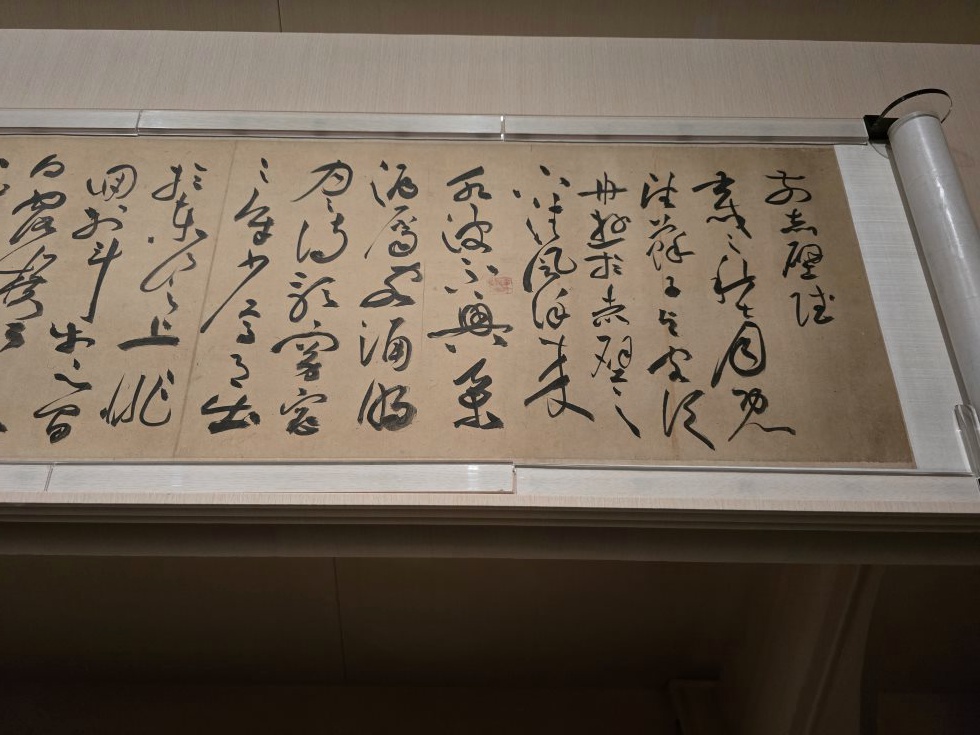 前赤壁賦
壬戌之秋七月既
望蘇子與客泛
舟遊於赤壁之
下清風徐來
水波不興舉
酒屬客誦明
月之詩歌窈窕
之章少焉月出
於東山之上徘
徊於斗牛之間
白露橫江